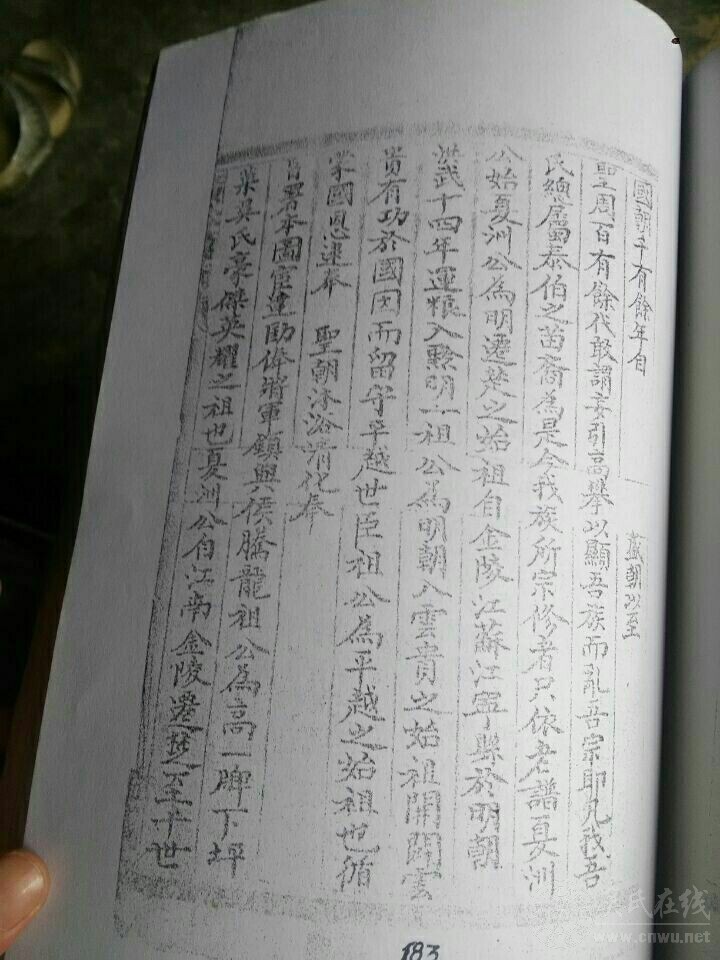 國朝千有餘年自 藍朝以至
聖周百有餘代敢謂妄引高攀以顯吾族而亂吾宗耶凡我吾
氏總屬泰伯之苗裔為是今我族所宗修者只依老譜夏洲
公始夏洲公為明遷楚之始祖自金陵江蘇江寧縣於明朝
洪武十四年運粮入黔明一祖公為明朝入雲貴之始祖開闢雲
貴有功於國因而留守平越世臣祖公為平越之始祖也循
蒙國恩速奉 聖朝沐浴清化奉
旨署本圖宦建勛偉將軍鎮興侯騰龍祖公為高一牌下坪
葉吳氏豪傑英耀之祖也夏洲公自江南金陵遷楚至十世
183
氏在线
www.cnwu.net